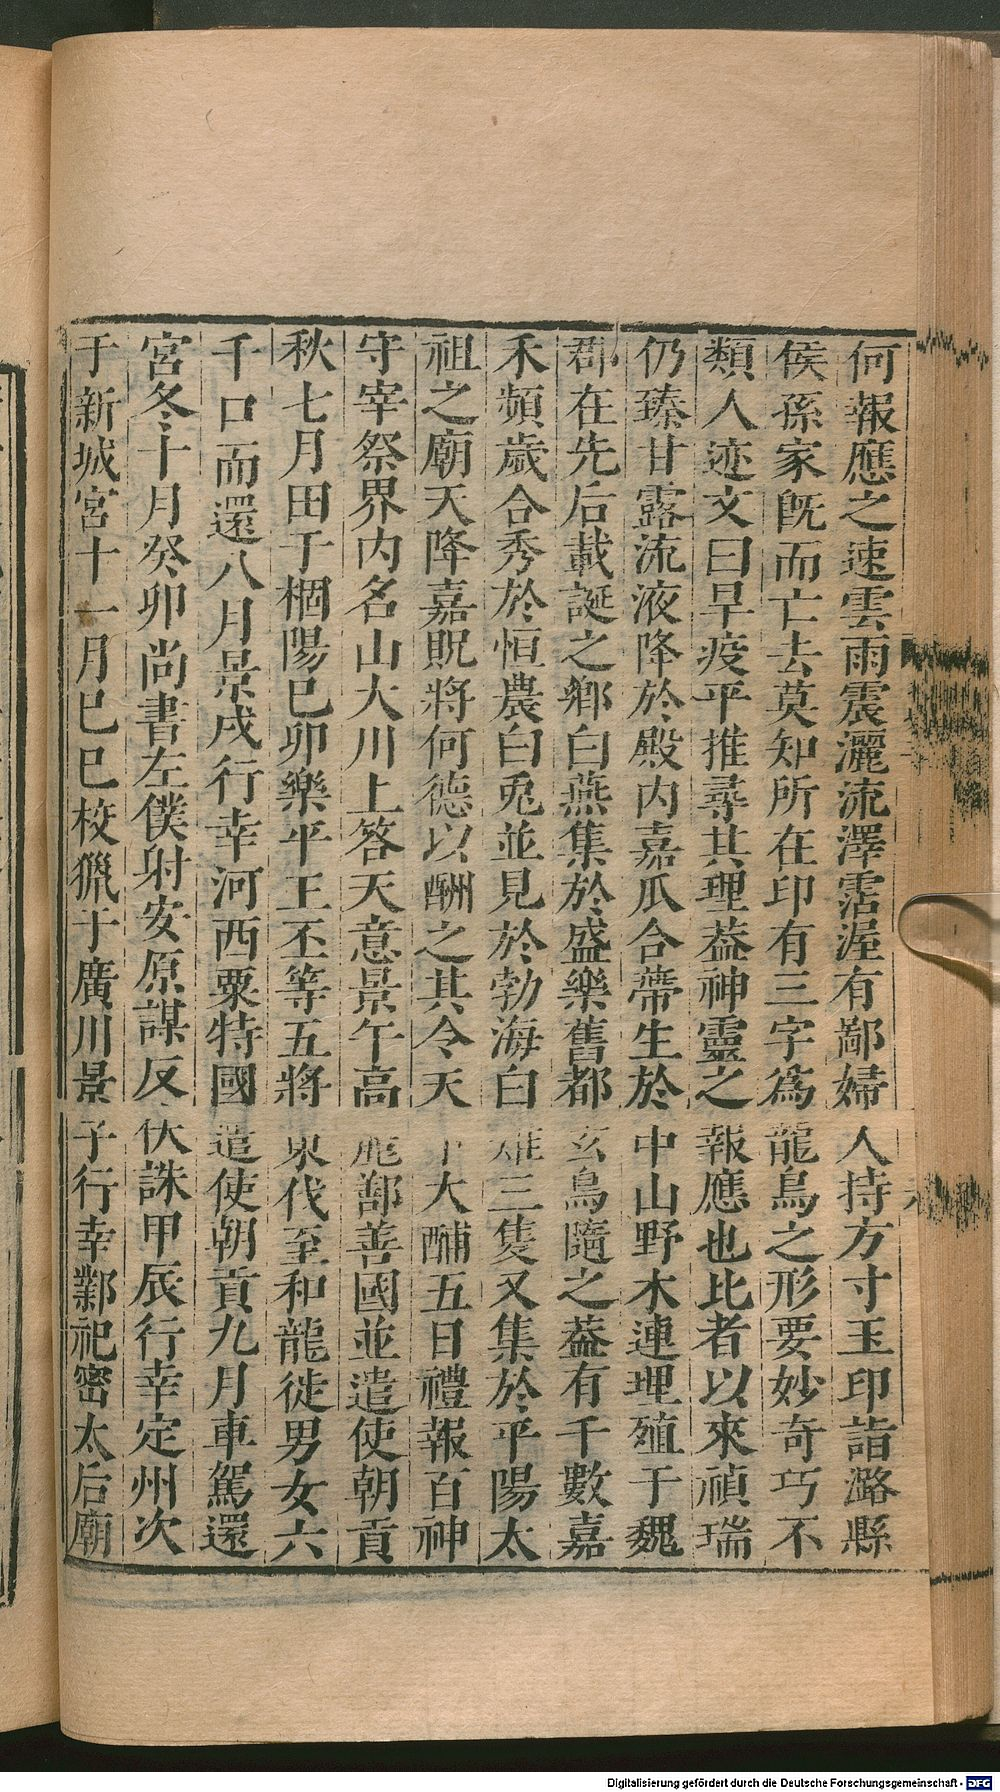 何報應之速雲雨震灑流澤霑渥有鄙婦人持方寸玉印詣潞縣
侯孫家旣而亡去莫知所在印有三字爲龍鳥之形要妙奇巧不
類人迹文曰旱疫平推尋其理葢神靈之報應也比者以來禎瑞
仍臻甘露流液降於殿内嘉瓜合蔕生於中山野木連理殖于魏
郡在先后載誕之鄉白燕集於盛樂舊都玄鳥隨之葢有千數嘉
禾頻歲合秀於恒農白兎並見於勃海白雉三隻又集於平陽太
祖之廟天降嘉貺將何德以酬之其令天下大酺五日禮報百神
守宰祭界内名山大川上答天意景午高麗鄯善國並遣使朝貢
秋七月田于棝陽已卯樂平王丕等五將東伐至和龍徙男女六
千口而還八月景戌行幸河西粟特國遣使朝貢九月車駕還
宮冬十月癸卯尚書左僕射安原謀反伏誅甲辰行幸定州次
于新城宮十一月巳巳校獵于廣川景子行幸鄴祀密太后廟
Digitalisierung gefördert durch die Deutsche Forschungsgemeinschaft - DFG